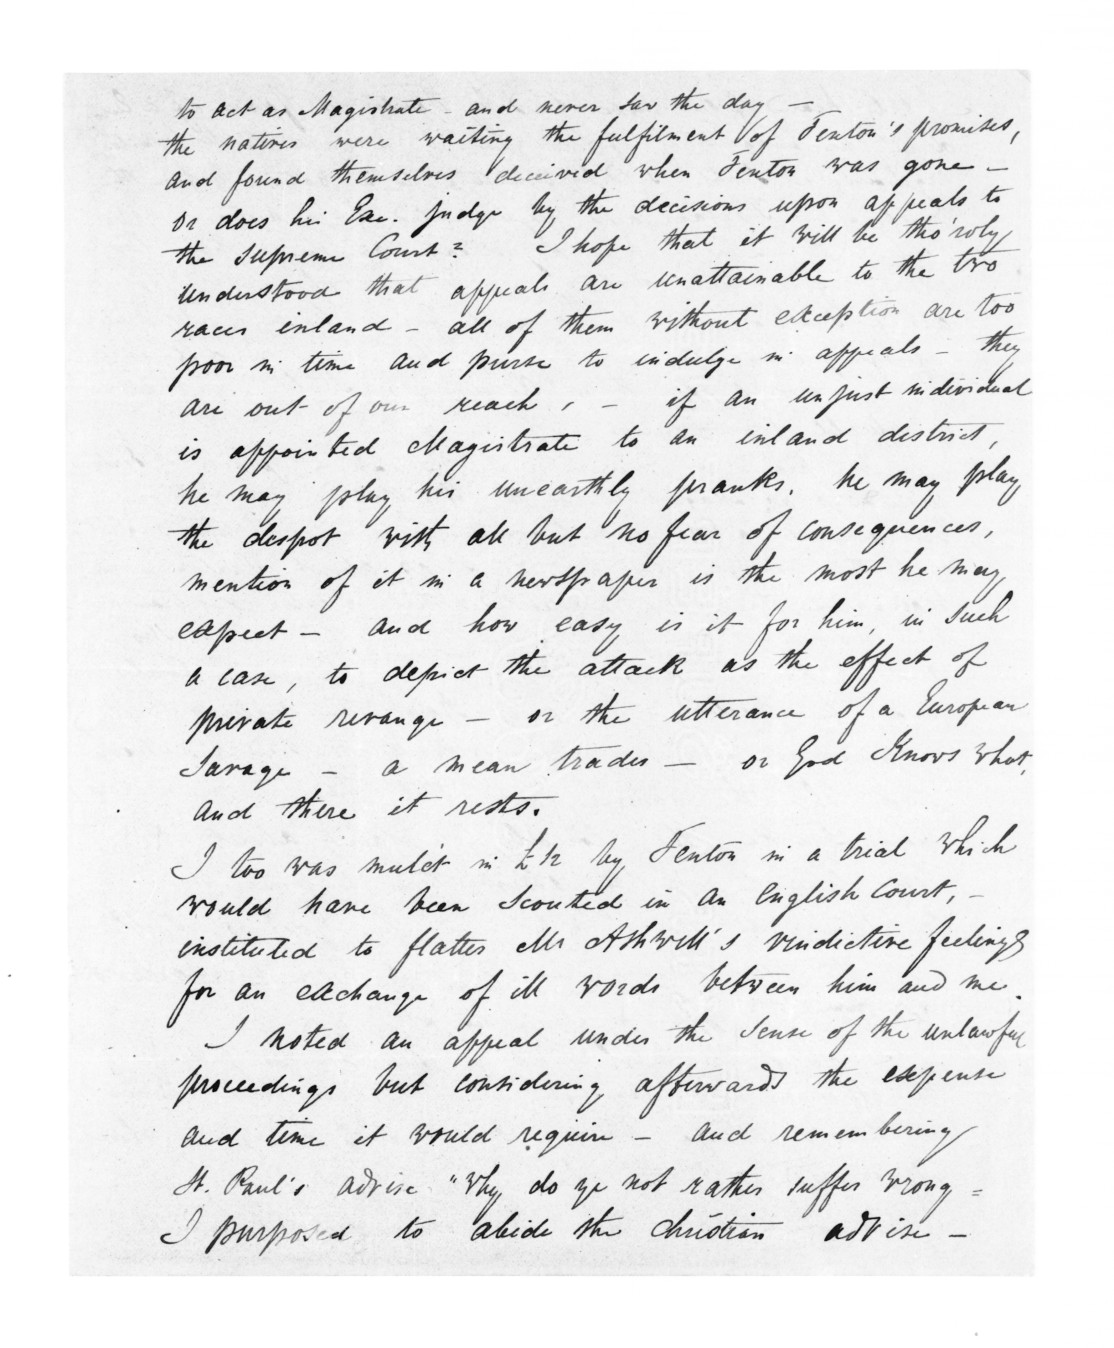 to act as Magistrate - and never saw the day -
the natives were waiting the fulfilment of Fenton's promises,
and found themselves deceived when Fenton was gone -
or does his Exc. judge by the decisions upon appeals to
the supreme Court? I hope that it will be tho'roly
understood that appeals are unattainable to the two
races inland - all of them without exception are too
poor in time and purse to indulge in appeals - they
are out of our reach, - if an unjust individual
is appointed Magistrate to an inland district,
he may play his unearthly pranks, he may play
the despot with all but no fear of consequences,
mention of it in a newspaper is the most he may
expect - and how easy is it for him, in such
a case, to depict the attack as the effect of
private revange - or the utterance of a European
Savage - a mean trader - or God Knows what,
and there it rests.
I too was mulct in £12 by Fenton in a trial which
would have been scouted in an English Court, -
instituted to flatter Mr Ashwell's vindictive feelings
for an exchange of ill words between him and me.
I noted an appeal under the sense of the unlawful
proceedings but considering afterwards the expense
and time it would require - and remembering
St. Paul's advise "Why do ye not rather suffer wrong =
I purposed to abide the christian advise -